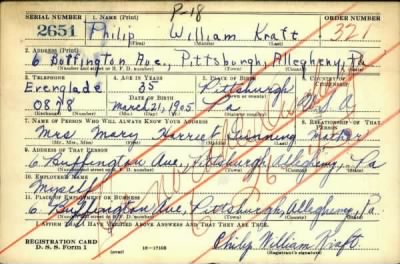 P-18
SERIAL NUMBER 1. NAME (Print) ORDER NUMBER
2651 Philip William Kraft 321
(First) (Middle) (Last)
2. ADDRESS (Print)
6 Buffington Ave., Pittsburgh, Allegheny, Pa
3. TELEPHONE 4. AGE IN YEARS 5. PLACE OF BIRTH 6. COUNTRY OF CITIZENSHIP
Everglade 35 Pittsburgh
DATE OF BIRTH
0878 March 21, 1905 Pa U.S.A.
7. NAME OF PERSON WHO WILL ALWAYS KNOW YOUR ADDRESS 8. RELATIONSHIP OF THAT PERSON
Mrs Mary Harriet Mother
9. ADDRESS OF THAT PERSON
6 Buffington Ave, Pittsburgh, Allegheny, Pa
10. EMPLOYER'S NAME
Myself
11. PLACE OF EMPLOYMENT OR BUSINESS
6 Buffington Ave, Pittsburgh, Allegheny, Pa.
I AFFIRM THAT I HAVE VERIFIED ABOVE ANSWERS AND THAT THEY ARE TRUE.
REGISTRATION CARD
D. S. S. Form 1 (over) 16—17105 Philip William Kraft
(Registrant's signature)